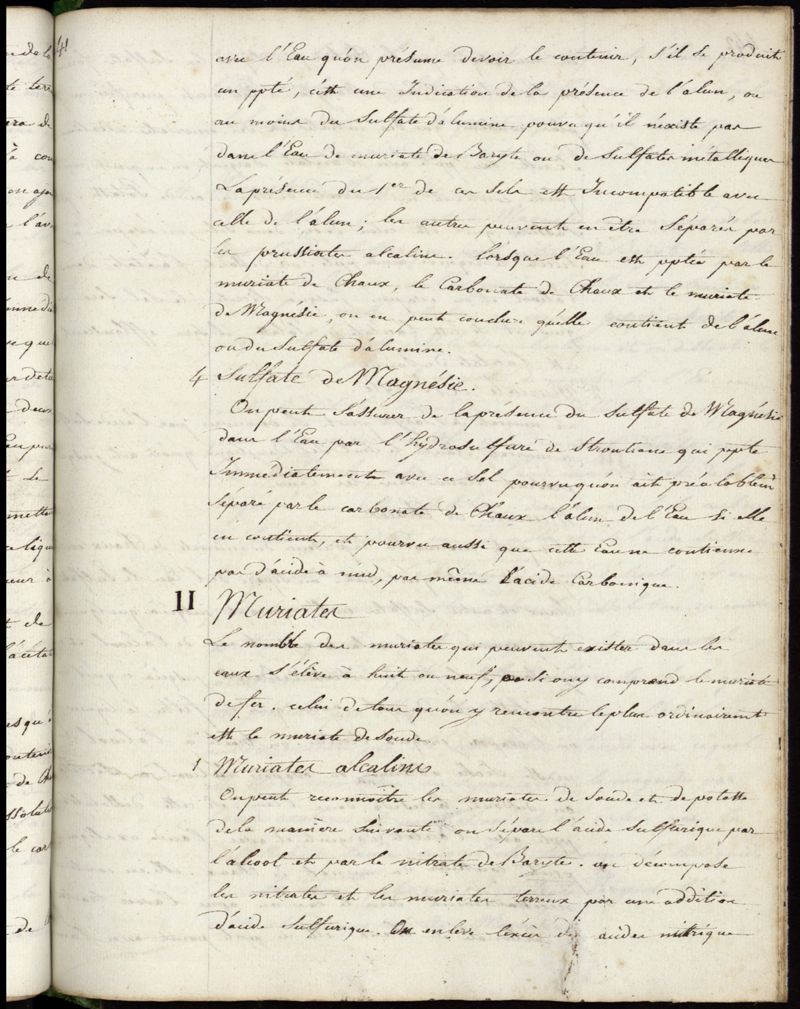 41
avec l'Eau qu'on présume devoir le contenir, s'il se produit
un ppté, c'est une Indication de la présence de l'alun, ou
au moins du Sulfate d'alumine pourvu qu'il n'existe pas
dans l'Eau de muriate de Baryte ou de Sulfates métalliques
La présence du 1er de ces Sels est Incompatible avec
celle de l'alun; les autres peuvent en être Séparés par
les prussiates alcalins. Lorsque l'Eau est pptée par le
muriate de Chaux, le Carbonate de Chaux et le muriate
de Magnésie, on en peut conclure qu'elle contient de l'alun
ou du Sulfate d'alumine.
4 Sulfate de Magnésie.
On peut s'assurer de la présence du Sulfate de Magnésie
dans l'Eau par l'hydrosulfure de Strontiane qui ppte
Immédiatement avec ce Sel pourvu qu'on ait préalablemt
Séparé par le carbonate de Chaux l'alun de l'Eau Si elle
en contient, et pourvu aussi que cette Eau ne contienne
pas d'acide à nud, pas même l'acide Carbonique.
II Muriates
Le nombre des muriates qui peuvent exister dans les
eaux s'élève à huit ou neuf, Si on y comprend le muriate
de fer. celui de tous qu'on y rencontre le plus ordinairement
est le muriate de Soude
1 Muriates alcalins
On peut reconnoître les muriates de Soude et de potasse
de la manière Suivante on Sépare l'acide Sulfurique par
l'alcool et par le nitrate de Baryte. on décompose
les nitrates et les muriates terreux par une addition
d'acide Sulfurique. On enlève l'excès des acides nitrique